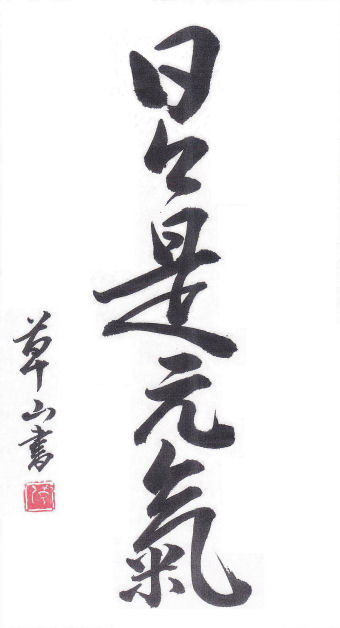 日々是元氣
草山書